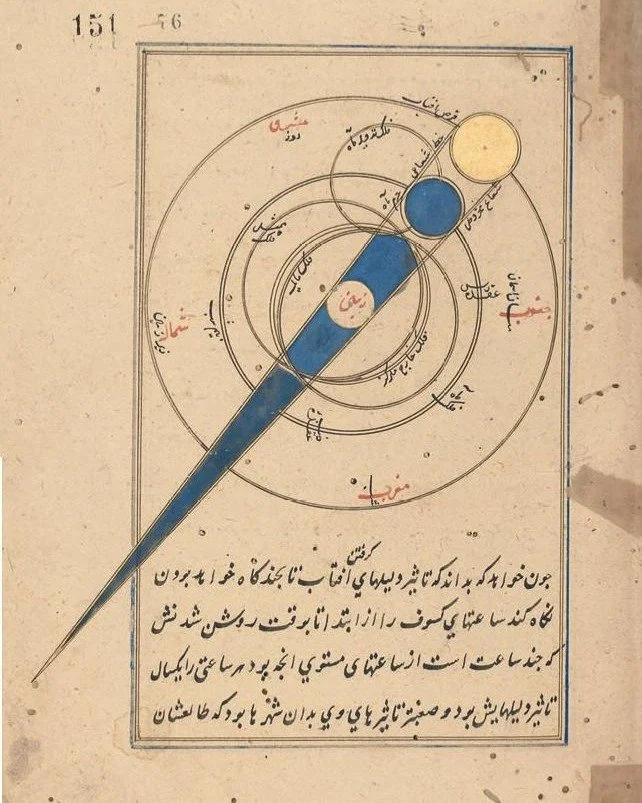 151
56
مشرق
قرص آفتاب
فلک تدویر ماه
خط شعاعی
جرم ماه
شعاع مخروطی
زمین
جنوب
شمال
فلک خارج مرکز
مغرب
گرفتن
چون خواهد که بداند که تاثیر دلیلهای افتاب تا بچند کاه خواهد بودن
نکاه کند ساعتهای کسوف را از ابتدا تا بوقت روشن شدنش
که چند ساعت است از ساعتهای مستوی انچه بود هر ساعتی را یکسال
تاثیر دلیلهایش بود و صعبتر تاثیرهای وی بدان شهرها بود که طالعشان